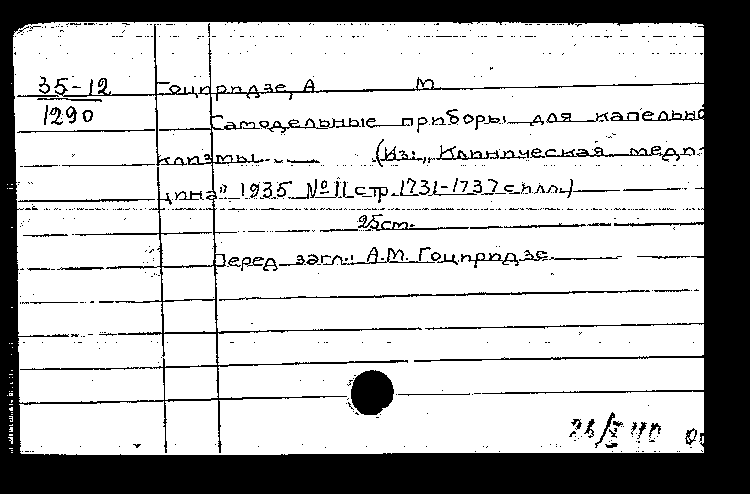 35-12
1290
Гоциридзе, А М
Самодельные приборы для капельно
клизмы.... (Из: „Клиническая меди-
цина" 1935 №11 стр. 1731-1737 с илл.)
25см.
Перед загл.: А.М. Гоциридзе
26/X 40